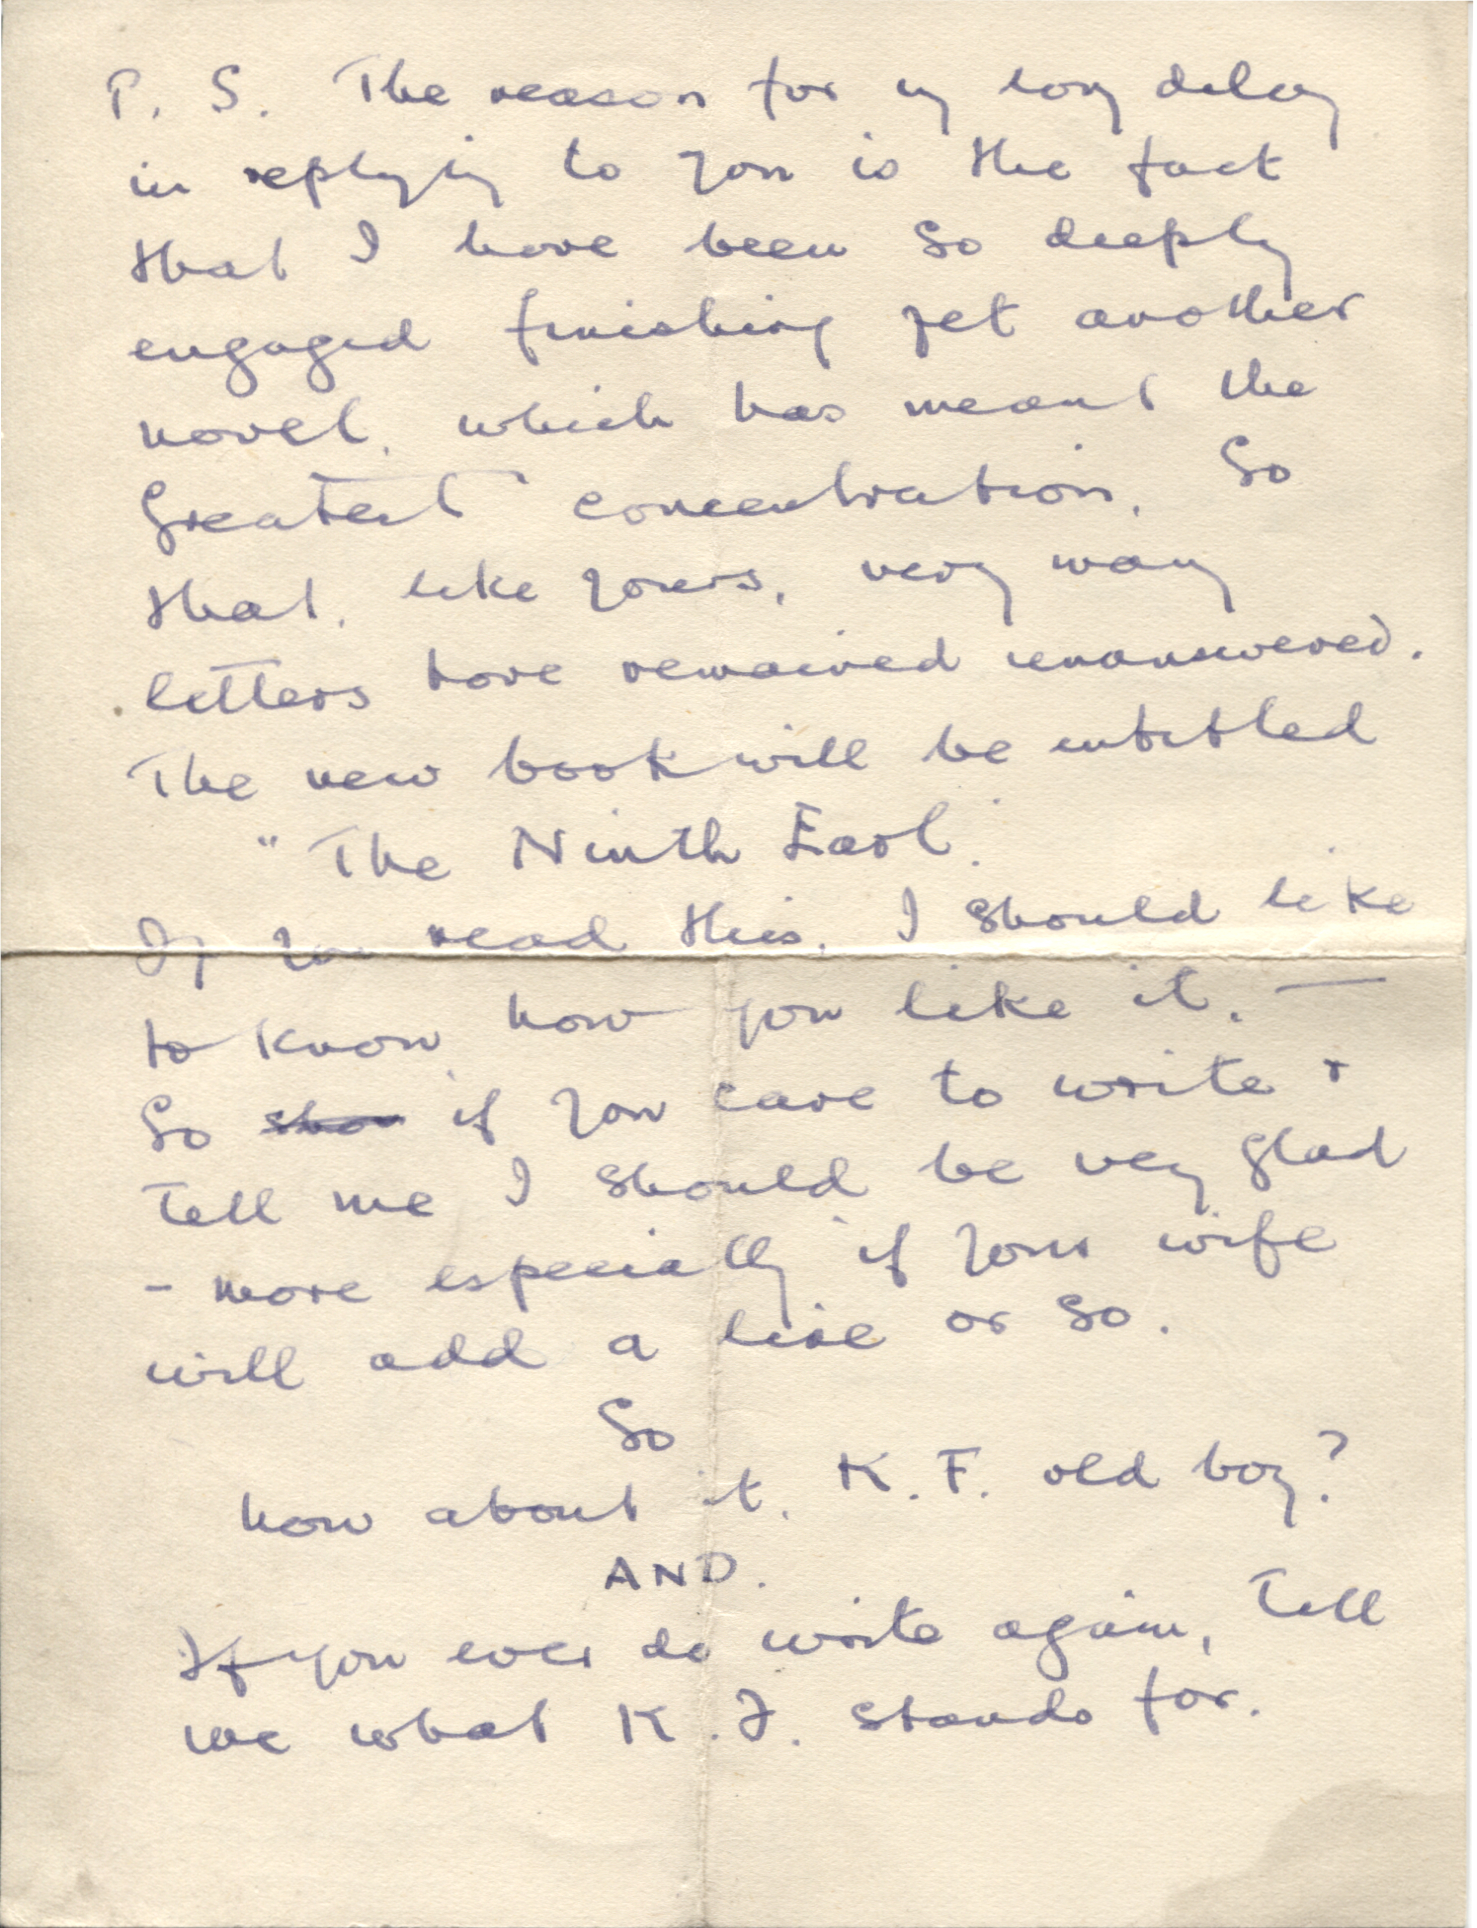 P. S. The reason for my long delay
in replying to you is the fact
that I have been so deeply
engaged finishing yet another
novel, which has meant the
greatest concentration. So
that, like yours, very many
letters have remained unanswered.
The new book will be entitled
"The Ninth Earl".
If you read this, I should like
to know how you like it. —
So shou if you care to write +
tell me I should be very glad
- more especially if your wife
will add a line or so.
So
how about it, K. F. old boy?
AND.
If you ever do write again, tell
me what K. F. stands for.